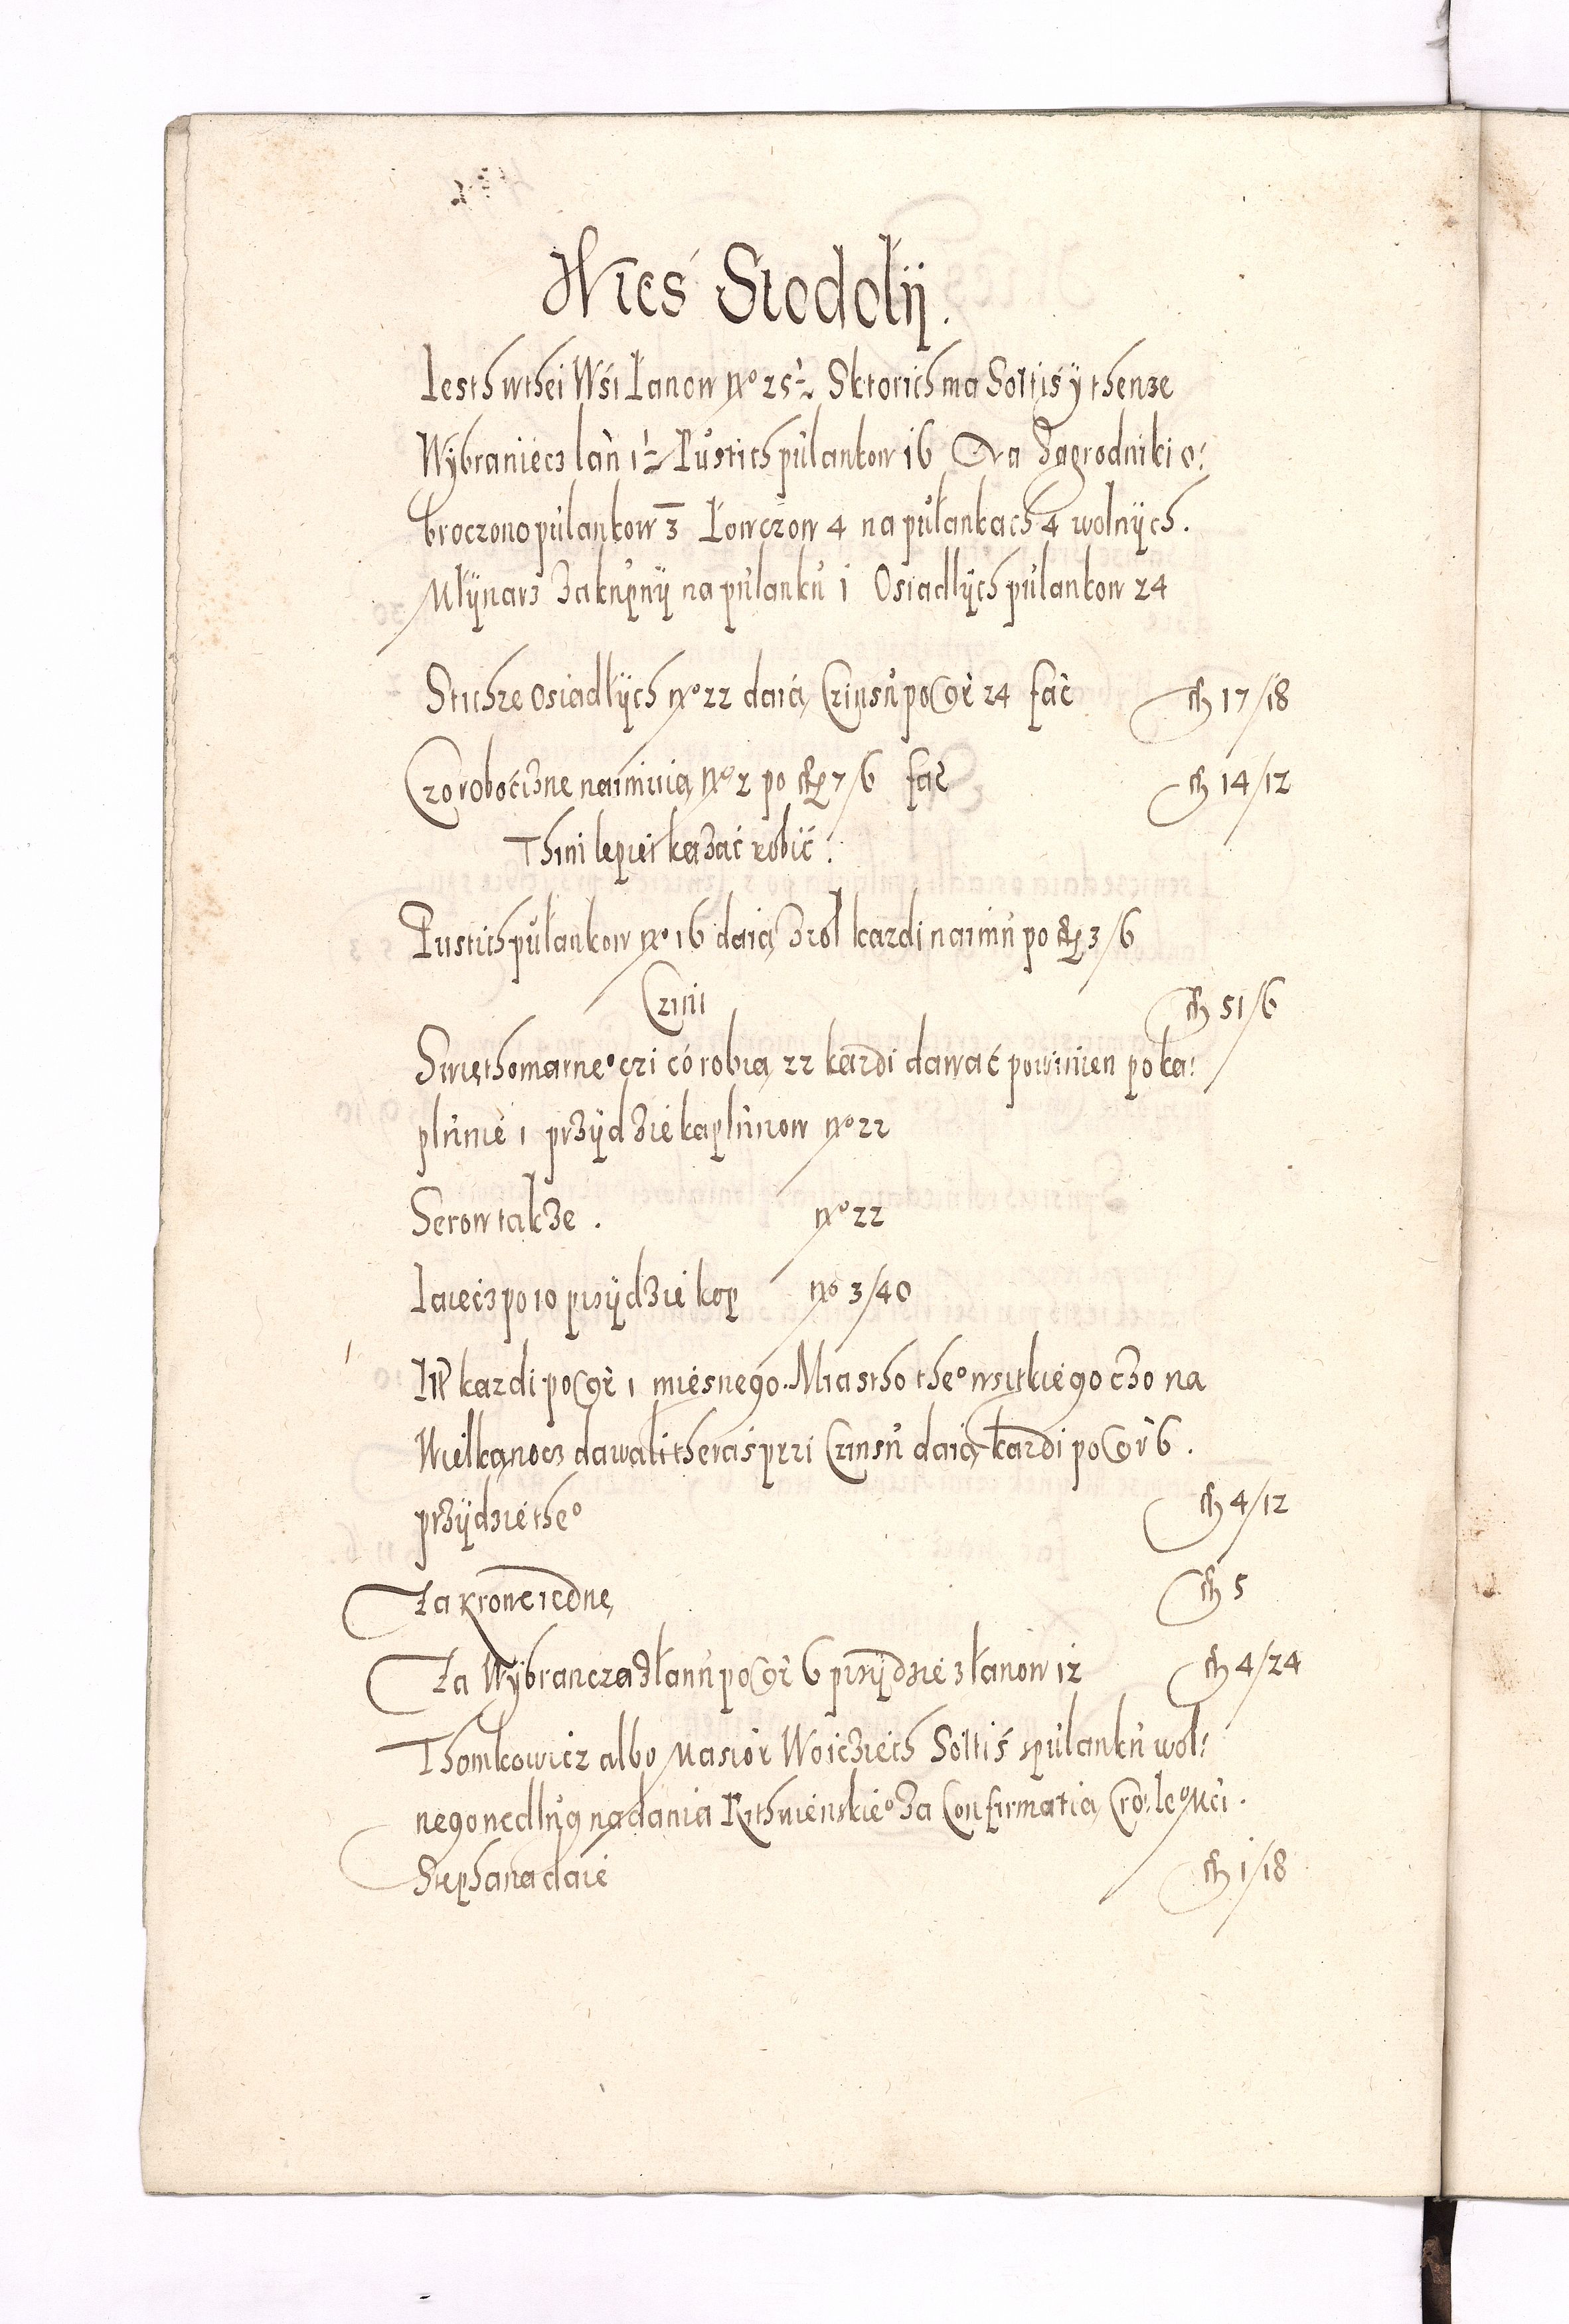 Wieś Stodolÿ.
Iesth wthei Wśi Łanow No 25½ Sktorich ma Soltiś ÿ thenze
Wÿbraniecz lan 1½ Pustich pulankow 16 Na Zagrodniki o:
broczono pulankow 3 Łowczow 4 na pułankach 4 wolnÿch.
Młÿnarz Zakupnÿ na pulanku 1 Osiadłÿch pulankow 24
Stichze osiadłÿch No 22 daią Czinsu po gr 24 fac fl 17/18
Czo robocizne naimuią No 2 po fl 7/6 fac fl 14/12
Thini lepiei kazać robić.
Pustich pułankow No 16 daią Zrol kazdi naimu po fl 3/6
Czini fl 51/6
Swięthomarneo czi có robią 22 kazdi dawać powinien po ka:
plunie 1 przÿdzie kaplunow No 22
Serow takze. No 22
Iaiecz po 10 przÿdzie kop No 3/40
It kazdi po gr 1 miesnego. Miastho theo wsitkiego czo na
Wielkanocz dawali theraś przi Czinsu daią kazdi po gr 6.
przÿdzie theo fl 4/12
Za krone iedne fl 5
Za Wÿbrancza Złanu po gr 6 przÿdzie złanow 12 fl 4/24
Thomkowicz albo Masior Woiciech Soltiś spulanku wol:
nego nedlug nadania Rithwienskieo Za Confirmatią Cro: leo Mci.
Stephana daie fl 1/18